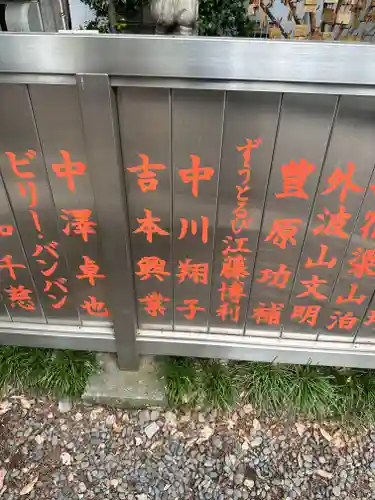 宿梁山泊
外波山文明
豊原功補
ずうとるび 江藤博利
中川翔子
吉本興業
中澤卓也
ビリー・バンバン
千